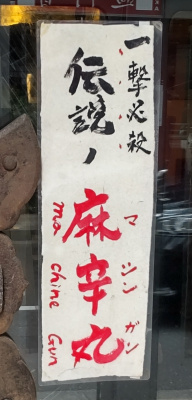 一撃必殺
伝説ノ
麻辛丸
マシンガン
machine Gun